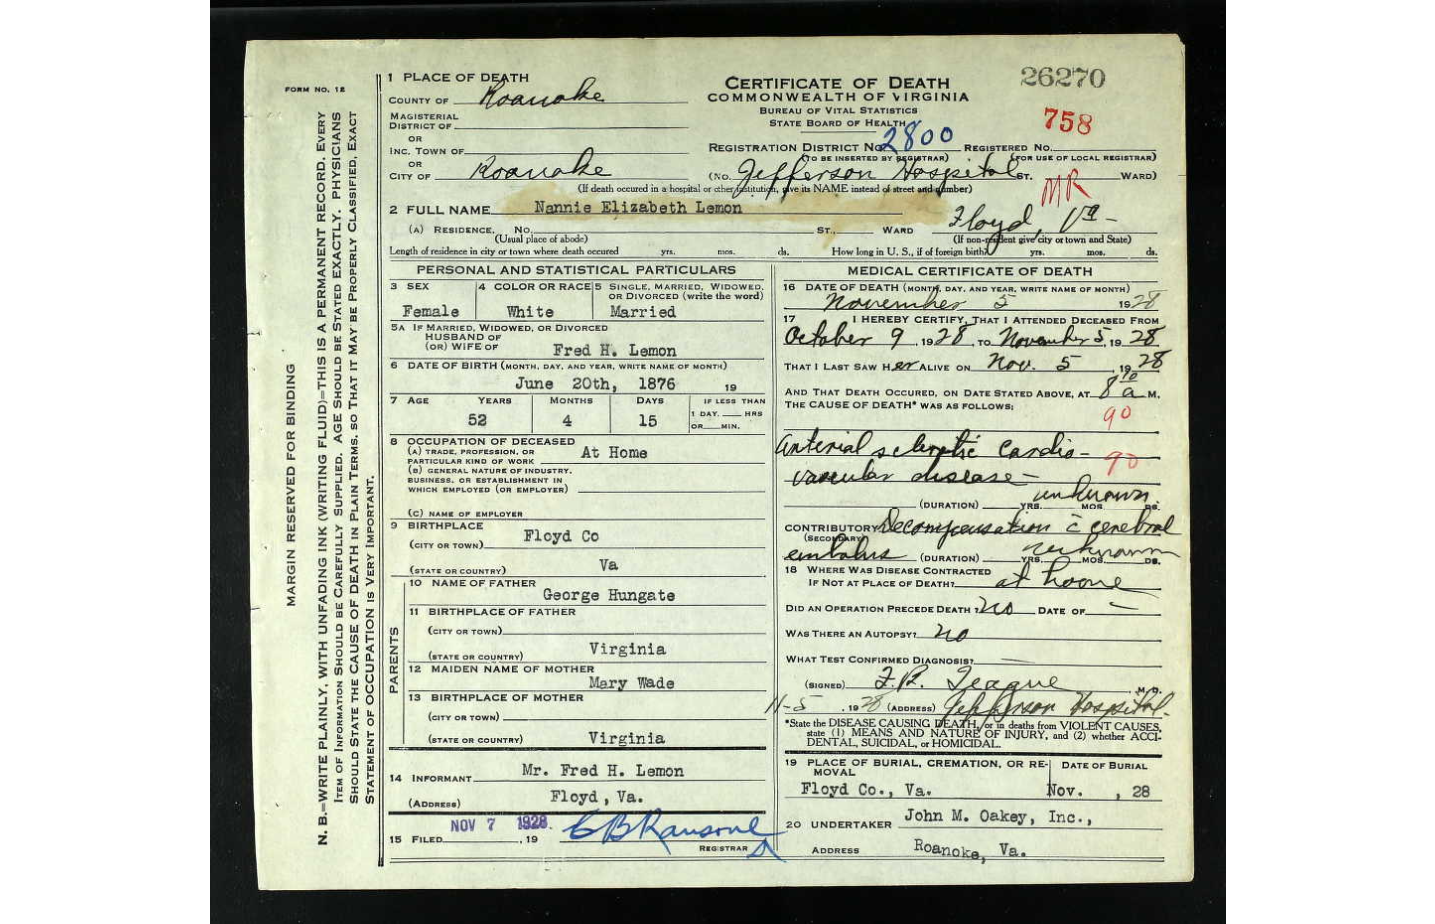 FORM NO. 12
MARGIN RESERVED FOR BINDING
N. B.—WRITE PLAINLY, WITH UNFADING INK (WRITING FLUID)—THIS IS A PERMANENT RECORD. EVERY
ITEM OF INFORMATION SHOULD BE CAREFULLY SUPPLIED. AGE SHOULD BE STATED EXACTLY. PHYSICIANS
SHOULD STATE THE CAUSE OF DEATH IN PLAIN TERMS, SO THAT IT MAY BE PROPERLY CLASSIFIED. EXACT
STATEMENT OF OCCUPATION IS VERY IMPORTANT.
1 PLACE OF DEATH
COUNTY OF Roanoke
MAGISTERIAL
DISTRICT OF
OR
INC. TOWN OF
OR
CITY OF Roanoke
CERTIFICATE OF DEATH
COMMONWEALTH OF VIRGINIA
BUREAU OF VITAL STATISTICS
STATE BOARD OF HEALTH
26270
758
REGISTRATION DISTRICT NO. 2800 REGISTERED NO.
(TO BE INSERTED BY REGISTRAR) (FOR USE OF LOCAL REGISTRAR)
(NO. Jefferson Hospital ST. WARD)
(If death occured in a hospital or other institution, give its NAME instead of street and number)
MR
2 FULL NAME Nannie Elizabeth Lemon
(A) RESIDENCE. NO. ST., WARD Floyd, Va-
(Usual place of abode) (If non-resident give city or town and State)
Length of residence in city or town where death occured yrs. mos. ds. How long in U. S., if of foreign birth? yrs. mos. ds.
PERSONAL AND STATISTICAL PARTICULARS
3 SEX
Female
4 COLOR OR RACE
White
5 SINGLE, MARRIED, WIDOWED,
OR DIVORCED (write the word)
Married
5A IF MARRIED, WIDOWED, OR DIVORCED
HUSBAND OF
(OR) WIFE OF Fred H. Lemon
6 DATE OF BIRTH (MONTH, DAY, AND YEAR, WRITE NAME OF MONTH)
June 20th, 1876 19
7 AGE YEARS MONTHS DAYS IF LESS THAN
52 4 15 1 DAY, HRS
OR MIN.
8 OCCUPATION OF DECEASED
(A) TRADE, PROFESSION, OR
PARTICULAR KIND OF WORK At Home
(B) GENERAL NATURE OF INDUSTRY,
BUSINESS, OR ESTABLISHMENT IN
WHICH EMPLOYED (OR EMPLOYER)
(C) NAME OF EMPLOYER
9 BIRTHPLACE
(CITY OR TOWN) Floyd Co
(STATE OR COUNTRY) Va
PARENTS
10 NAME OF FATHER
George Hungate
11 BIRTHPLACE OF FATHER
(CITY OR TOWN)
(STATE OR COUNTRY) Virginia
12 MAIDEN NAME OF MOTHER
Mary Wade
13 BIRTHPLACE OF MOTHER
(CITY OR TOWN)
(STATE OR COUNTRY) Virginia
14 INFORMANT Mr. Fred H. Lemon
(ADDRESS) Floyd, Va.
15 FILED NOV 7 1928. , 19 C B Ransone
REGISTRAR
MEDICAL CERTIFICATE OF DEATH
16 DATE OF DEATH (MONTH, DAY, AND YEAR, WRITE NAME OF MONTH)
November 5 1928
17 I HEREBY CERTIFY, THAT I ATTENDED DECEASED FROM
October 9, 1928, TO November 5, 1928
THAT I LAST SAW HER ALIVE ON Nov. 5, 1928
AND THAT DEATH OCCURED, ON DATE STATED ABOVE, AT 8 10 a M.
THE CAUSE OF DEATH* WAS AS FOLLOWS:
90
Arterial sclerotic Cardio-
90
vascular disease-
(DURATION) unknown YRS. MOS. DS.
CONTRIBUTORY Decompensation c̄ cerebral
(SECONDARY)
embolus (DURATION) unknown YRS. MOS. DS.
18 WHERE WAS DISEASE CONTRACTED
IF NOT AT PLACE OF DEATH? at home
DID AN OPERATION PRECEDE DEATH? no DATE OF —
WAS THERE AN AUTOPSY? no
WHAT TEST CONFIRMED DIAGNOSIS? —
(SIGNED) F.B. Teague M.D.
11-5, 1928 (ADDRESS) Jefferson Hospital.
*State the DISEASE CAUSING DEATH, or in deaths from VIOLENT CAUSES,
state (1) MEANS AND NATURE OF INJURY, and (2) whether ACCI-
DENTAL, SUICIDAL, or HOMICIDAL.
19 PLACE OF BURIAL, CREMATION, OR RE-
MOVAL
Floyd Co., Va.
DATE OF BURIAL
Nov. , 28
20 UNDERTAKER John M. Oakey, Inc.,
ADDRESS Roanoke, Va.